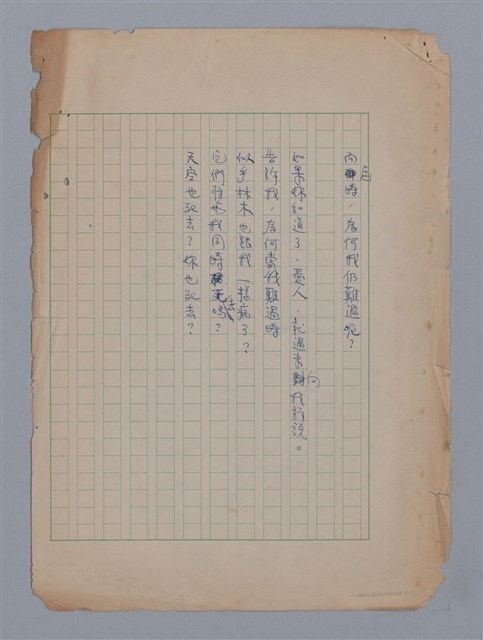 向我時,為何我仍難過呢?
如果妳知道了,愛人,就過來向我訴說。
告訴我,為何當我難過時
似乎林木也跟我一樣病了?
它們將和我同時死去嗎?
天空也死去?妳也死去?